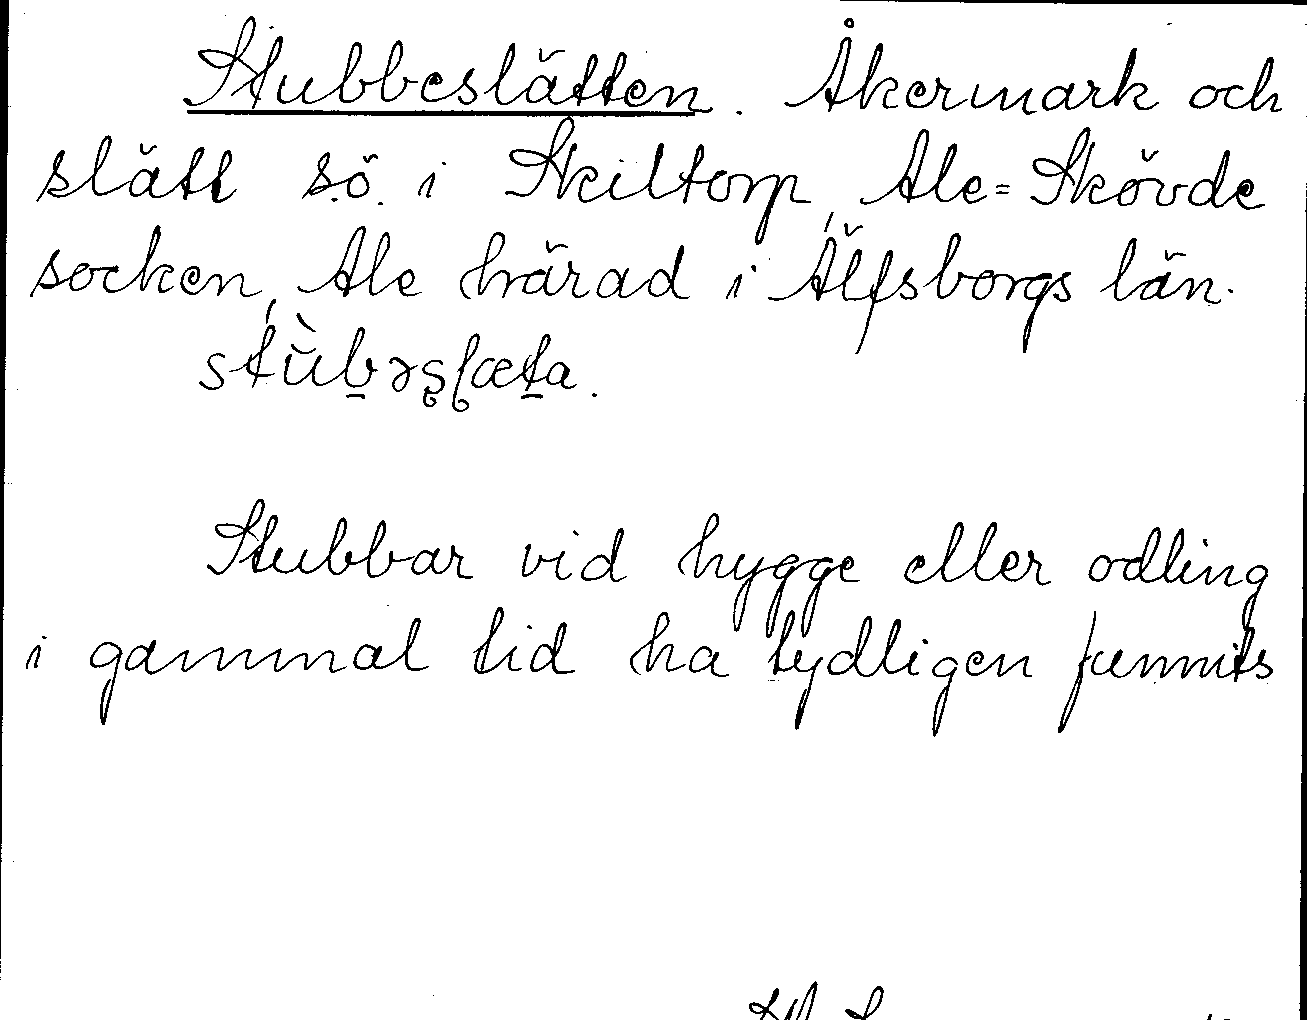 Stubbeslätten. Åkermark och
slätt s.ö. i Skiltorp, Ale=Skövde
socken, Ale härad i Älfsborgs län.
stùbəslæta.
Stubbar vid hygge eller odling
i gammal tid ha tydligen funnits